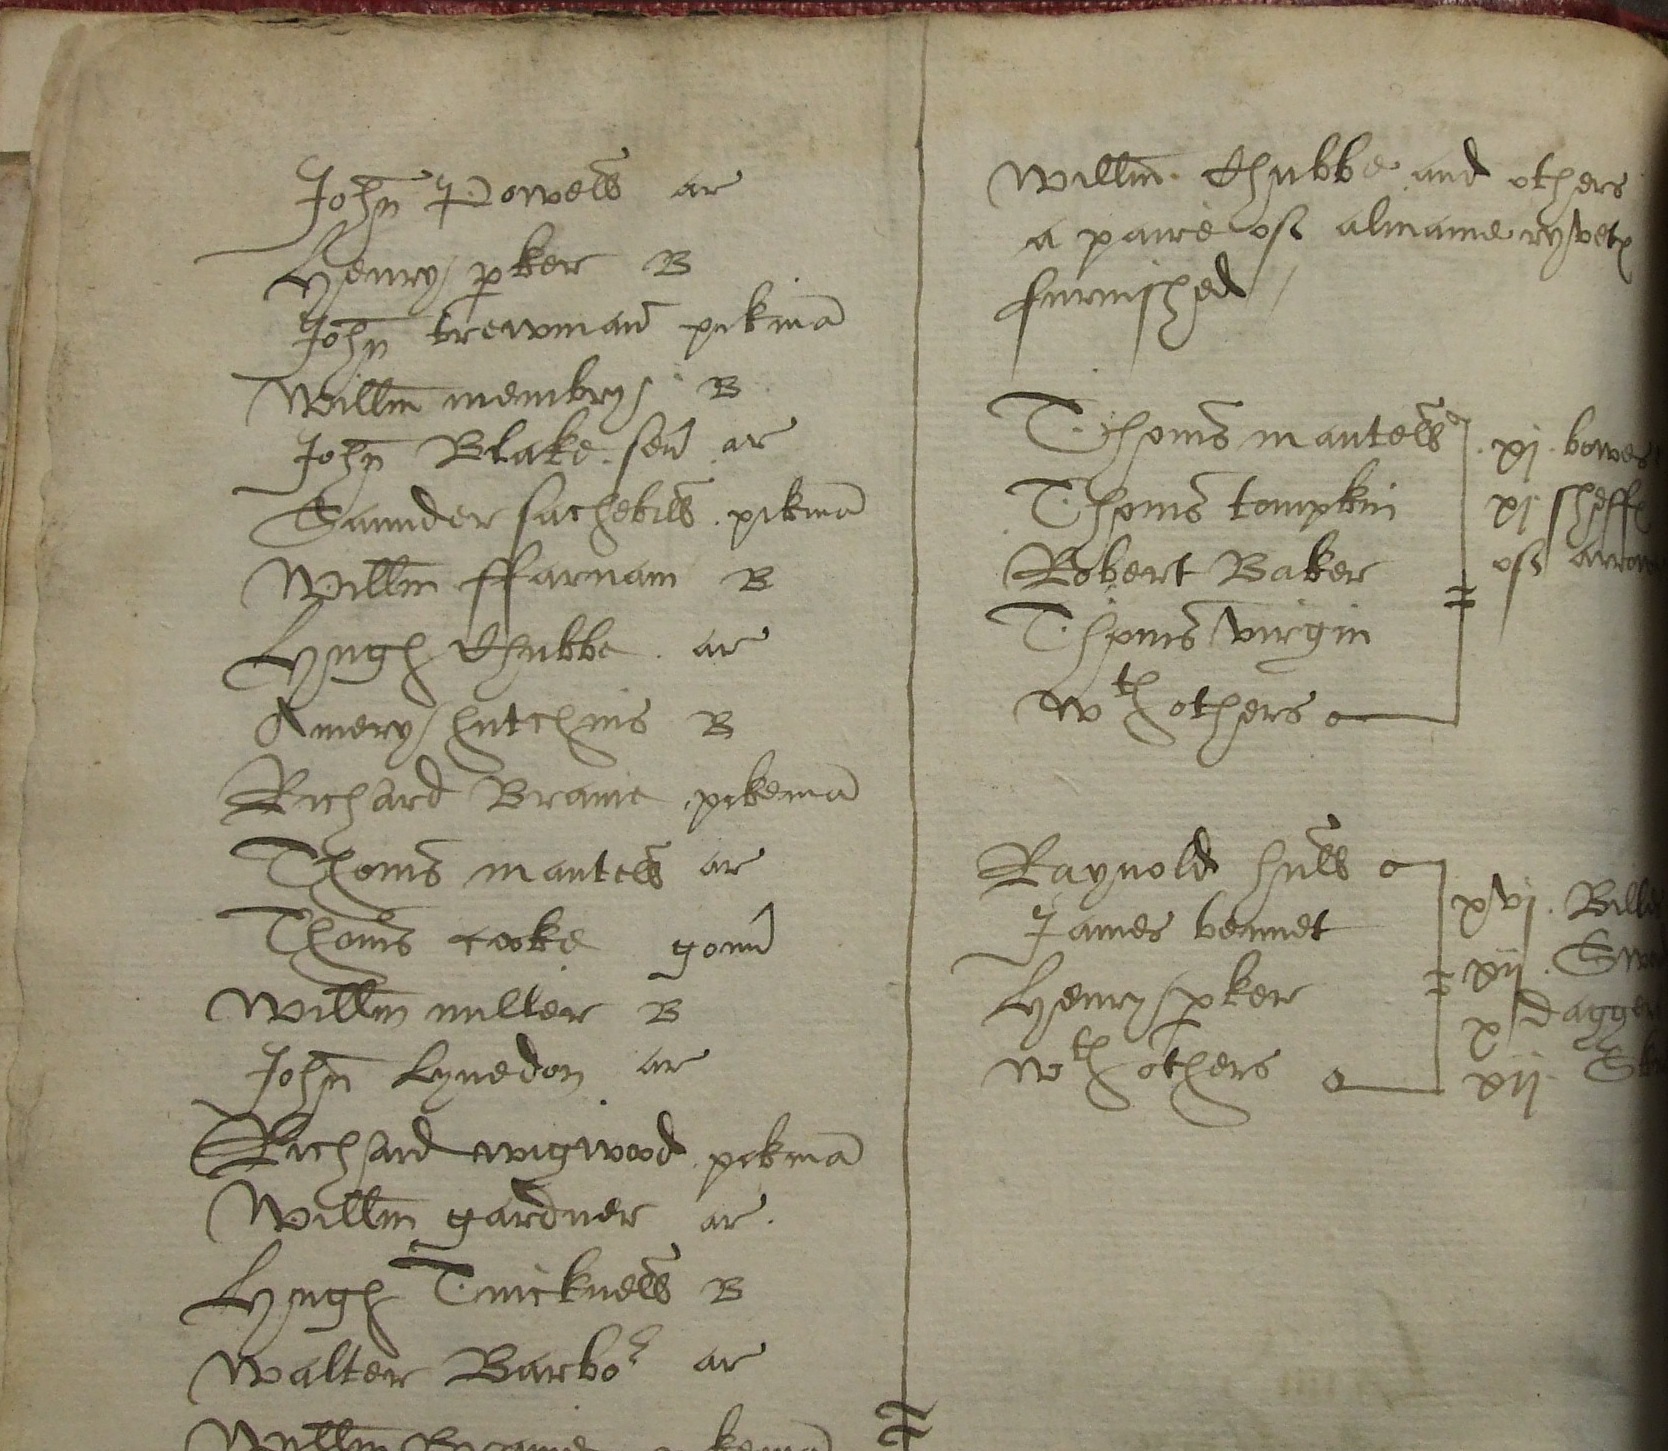 John Powell ar
Henry pker B
John trewman pikma
Willm membry B
John Blake sen ar
Saunder sachebill pikma
Willm ffarnam B
Hugh Chubbe ar
Amery hutchins B
Richard Brame pikema
Thoms mantell ar
Thoms cooke gonn
Willm miller B
John Lynedon ar
Richard wigwood pikma
Willm gardner ar
Hugh Tuicknell B
Walter Barbor ar
Willm
Willm Chubbe and others
a paire of almaine ryvetes
furnished
Thoms mantell
Thoms tompkin
Robert Baker
Thoms virgin
wth others
xj bowes
xj sheffes
of
Raynold hull
James bennet
Henry pker
wth others
xvj
xij
x
xij